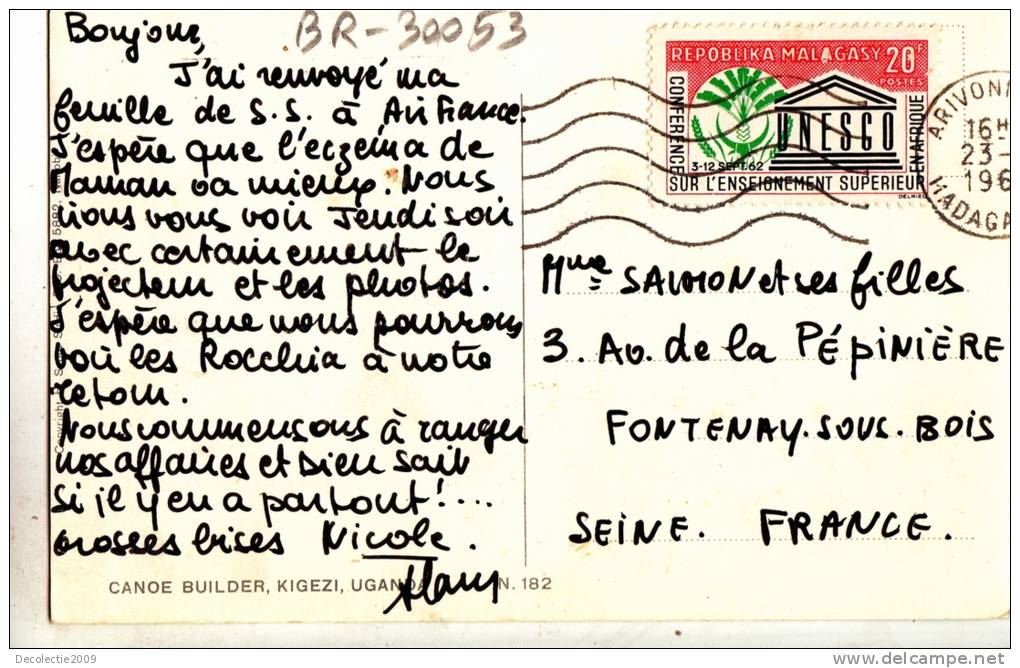 Bonjour,
BR-30053
J'ai renvoyé ma
feuille de S.S. à Air France.
J'espère que l'eczéma de
Maman va mieux. Nous
irons vous voir Jeudi soir
avec certainement le
projecteur et les photos.
J'espère que nous pourrons
voir les Rocchia à notre
retour.
Nous commensons à ranger
nos affaires et Dieu sait
si il y en a partout!...
Grosses bises Nicole.
CANOE BUILDER, KIGEZI, UGANDA N. 182
REPOBLIKA MALAGASY 20F
POSTES
CONFERENCE
UNESCO
EN AFRIQUE
3-12 SEPT. 62
SUR L'ENSEIGNEMENT SUPERIEUR
ARIVONI
16H
23-
196
MADAGA
Mme SALMON et ses filles
3. Av. de la PÉPINIÈRE
FONTENAY.SOUS.BOIS
SEINE. FRANCE.
Decolectie2009
www.delcampe.net